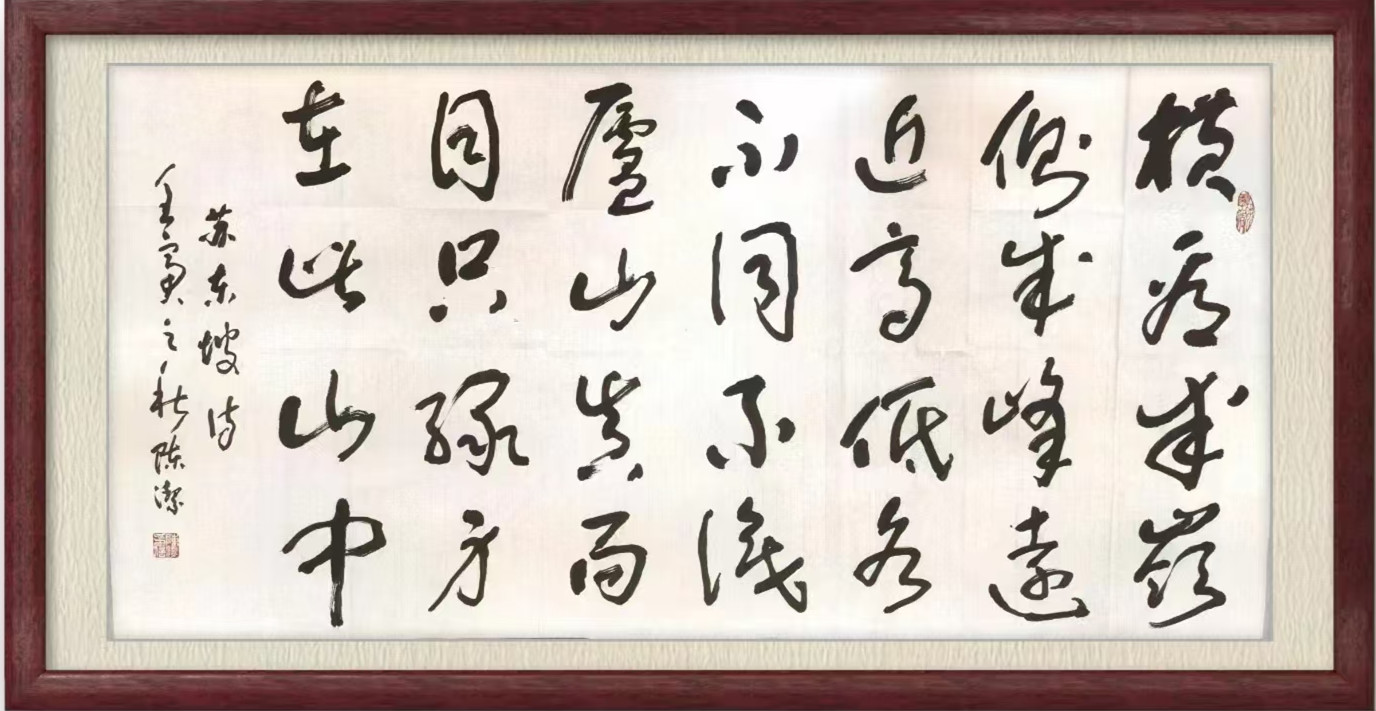 横看成嶺
側成峰遠
近高低各
不同不識
廬山真面
目只緣身
在此山中
苏东坡诗
壬寅之秋陈潔